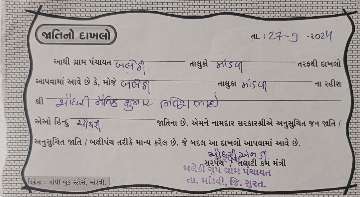 જાતિનો દાખલો
તા. : 27-9-2024
આથી ગ્રામ પંચાયત બલેઠી તાલુકો માંડવી તરફથી દાખલો
આપવામાં આવે છે કે, મોજે બલેઠી તાલુકા માંડવી ના રહીશ
શ્રી ચૌધરી કુમાર
એઓ હિન્દુ ચૌધરી જાતિના છે. એમને નામદાર સરકારશ્રીએ અનુસુચિત જન જાતિ /
અનુસુચિત જાતિ / બક્ષીપંચ તરીકે માન્ય કરેલ છે. જે બદલ આ દાખલો આપવામાં આવે છે.
સરપંચ / તલાટી કમ મંત્રી
બલેઠી ગ્રુપ ગ્રામ પંચાયત
તા. માંડવી, જિ. સુરત.